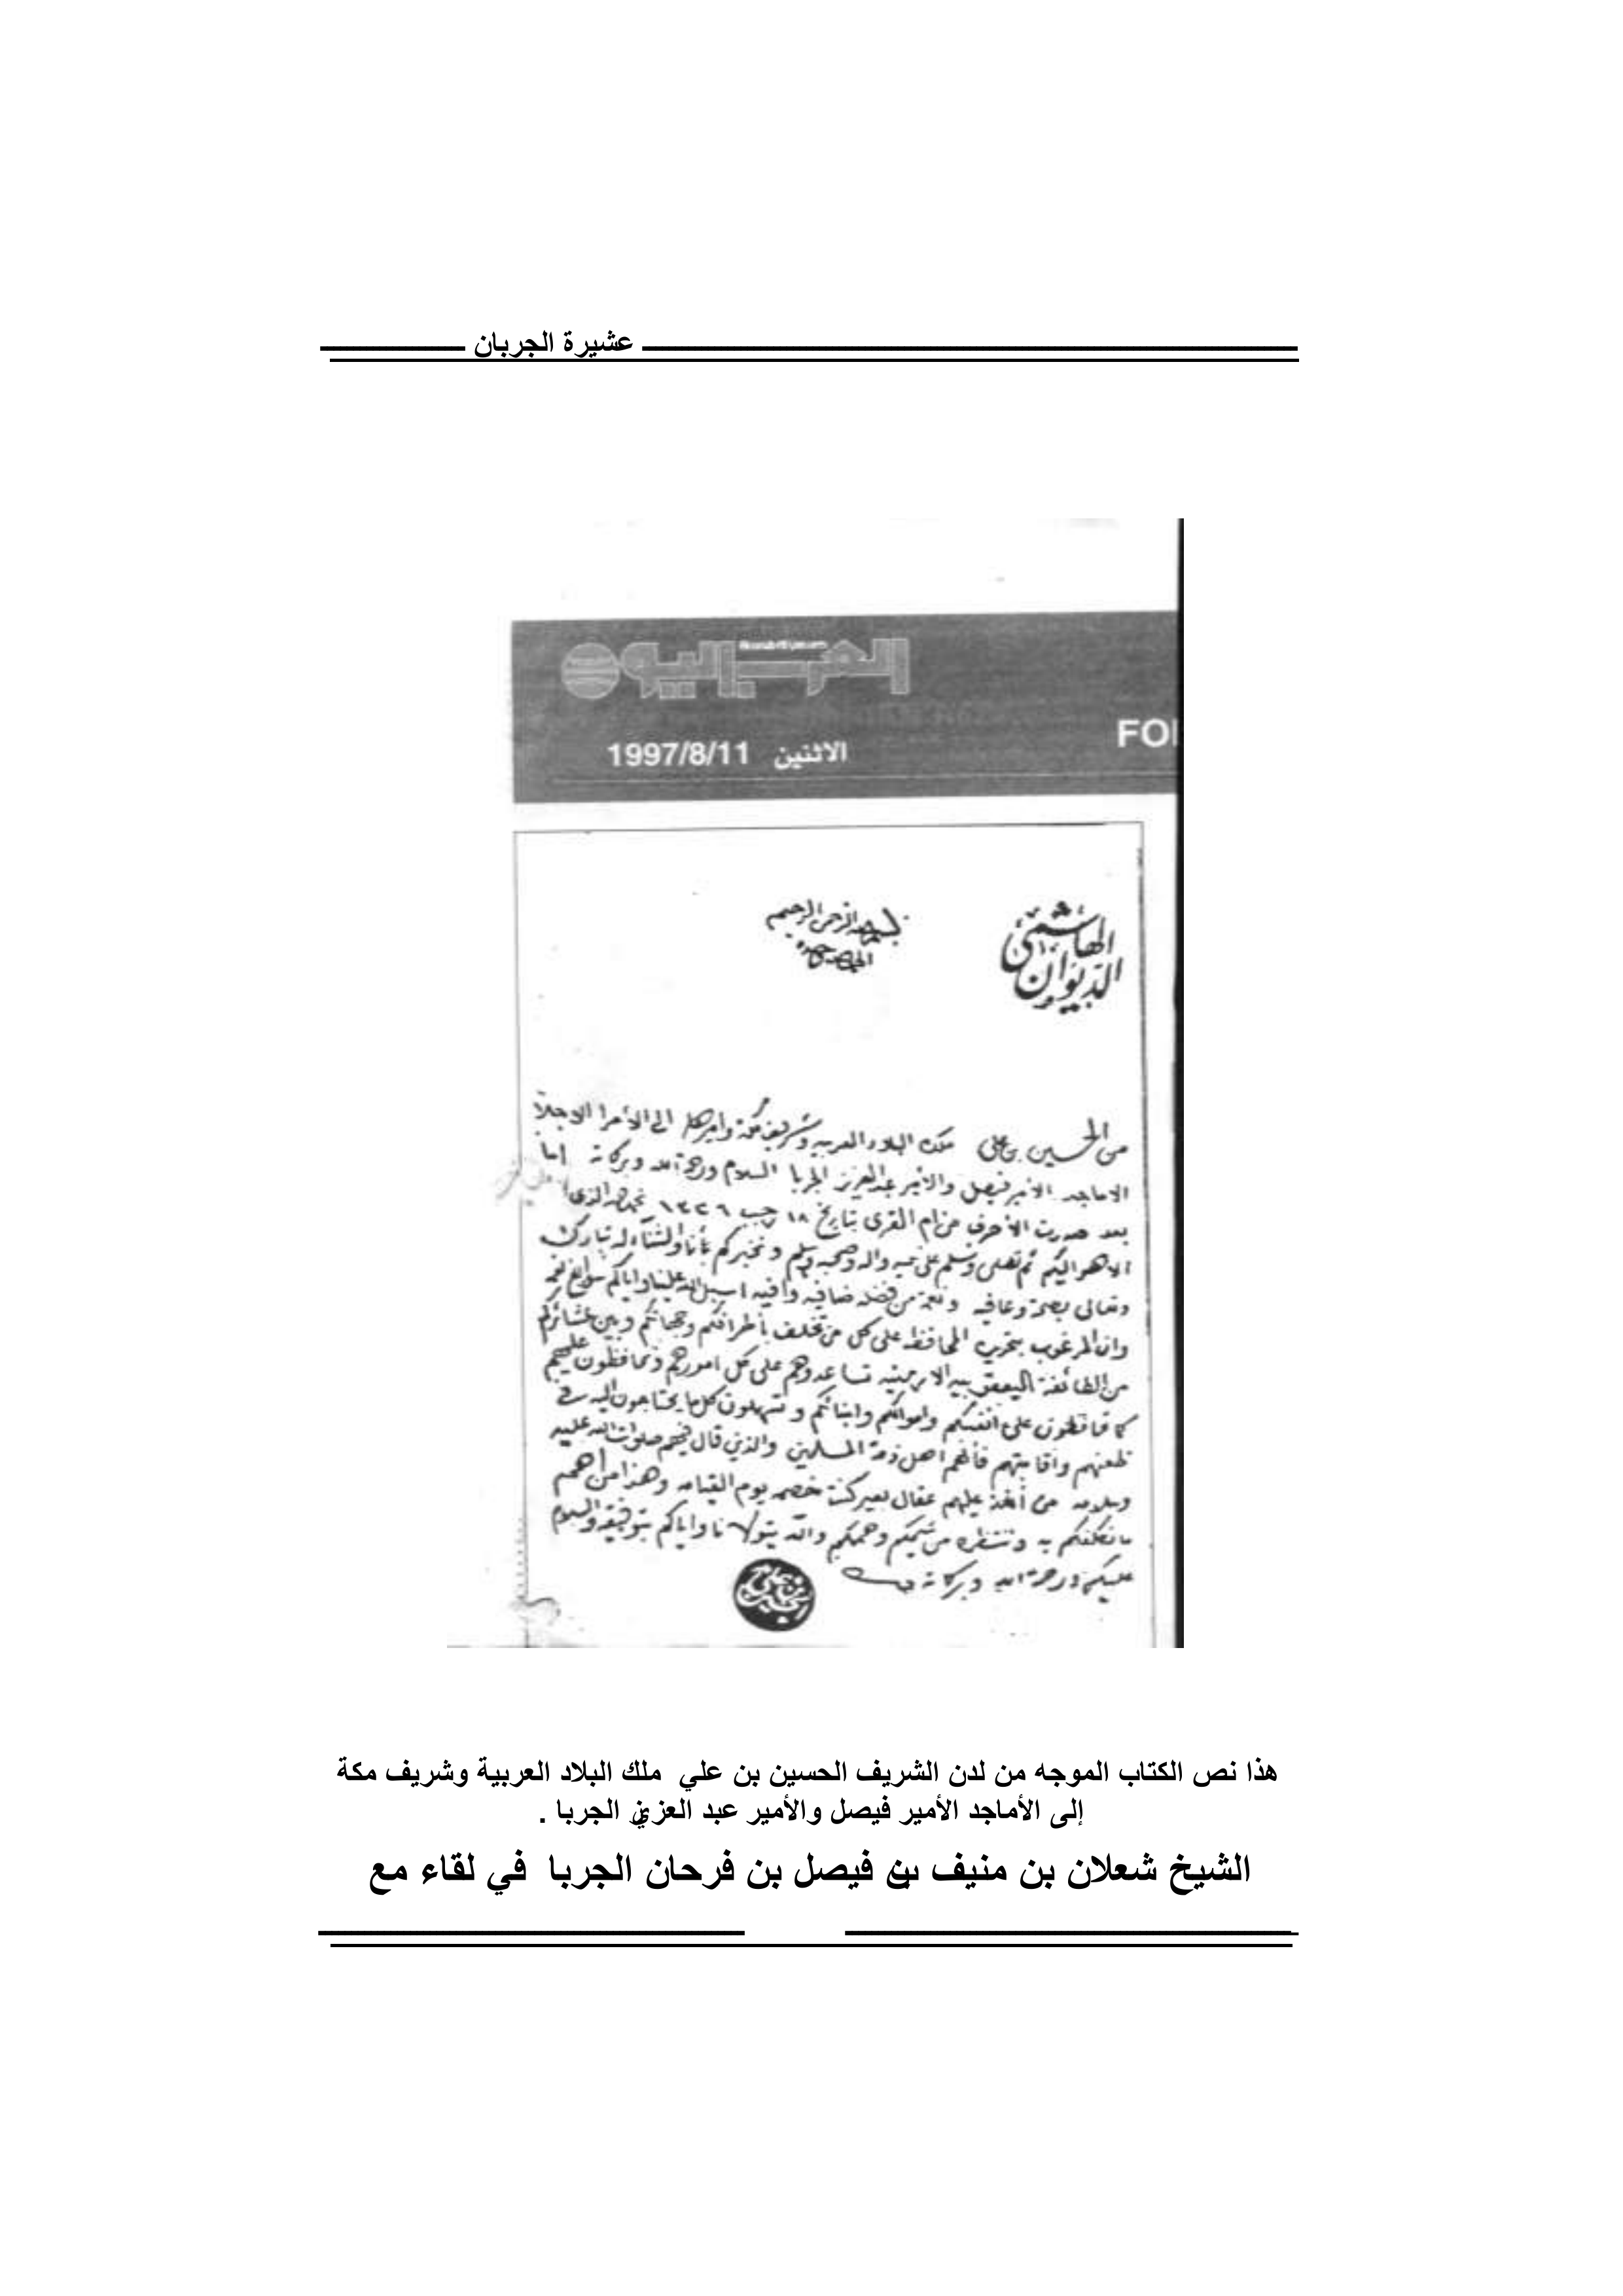 عشيرة الجربان
العرب اليوم
الاثنين 1997/8/11
FO
الديوان الهاشمي
بسم الله الرحمن الرحيم
الحمد لله وحده
من الحسين بن علي ملك البلاد العربيه وشريف مكة واميرها الى الأمرا الاجلا
الاماجد الأمير فيصل والأمير عبدالعزيز الجربا السلام ورحمة الله وبركاته اما
بعد صدرت الأحرف من ام القرى بتاريخ ١٨ رجب ١٣٣٦ نحمد الله الذي
لا اله الا هو اليكم ثم نصلى ونسلم على نبيه واله وصحبه وسلم ونخبركم بأنا والثناء له تبارك
وتعالى بصحة وعافيه ونعمة من فضله ضافيه وافيه اسبل الله علينا واياكم سوابغ نعمه
وان المرغوب بتحريره المحافظه على كل من تخلف بأطرافكم وجهاتكم وبين عشائركم
من الطائفة اليعقوبيه الارمنيه تساعدوهم على كل امورهم وتحافظون عليهم
كما تحافظون على انفسكم واموالكم وابنائكم وتسهلون كل ما يحتاجون اليه في
ظعنهم واقامتهم فأنهم اهل ذمة المسلمين والذين قال فيهم صلوات الله عليه
وسلامه من أخذ عليهم عقال بعير كنت خصمه يوم القيامه وهذا من اهم
مانكلفكم به وننتظره من شيمكم وهممكم والله يتولانا واياكم بتوفيقه والسلام
عليكم ورحمة الله وبركاته
هذا نص الكتاب الموجه من لدن الشريف الحسين بن علي ملك البلاد العربية وشريف مكة
إلى الأماجد الأمير فيصل والأمير عبد العزيز الجربا .
الشيخ شعلان بن منيف بن فيصل بن فرحان الجربا في لقاء مع